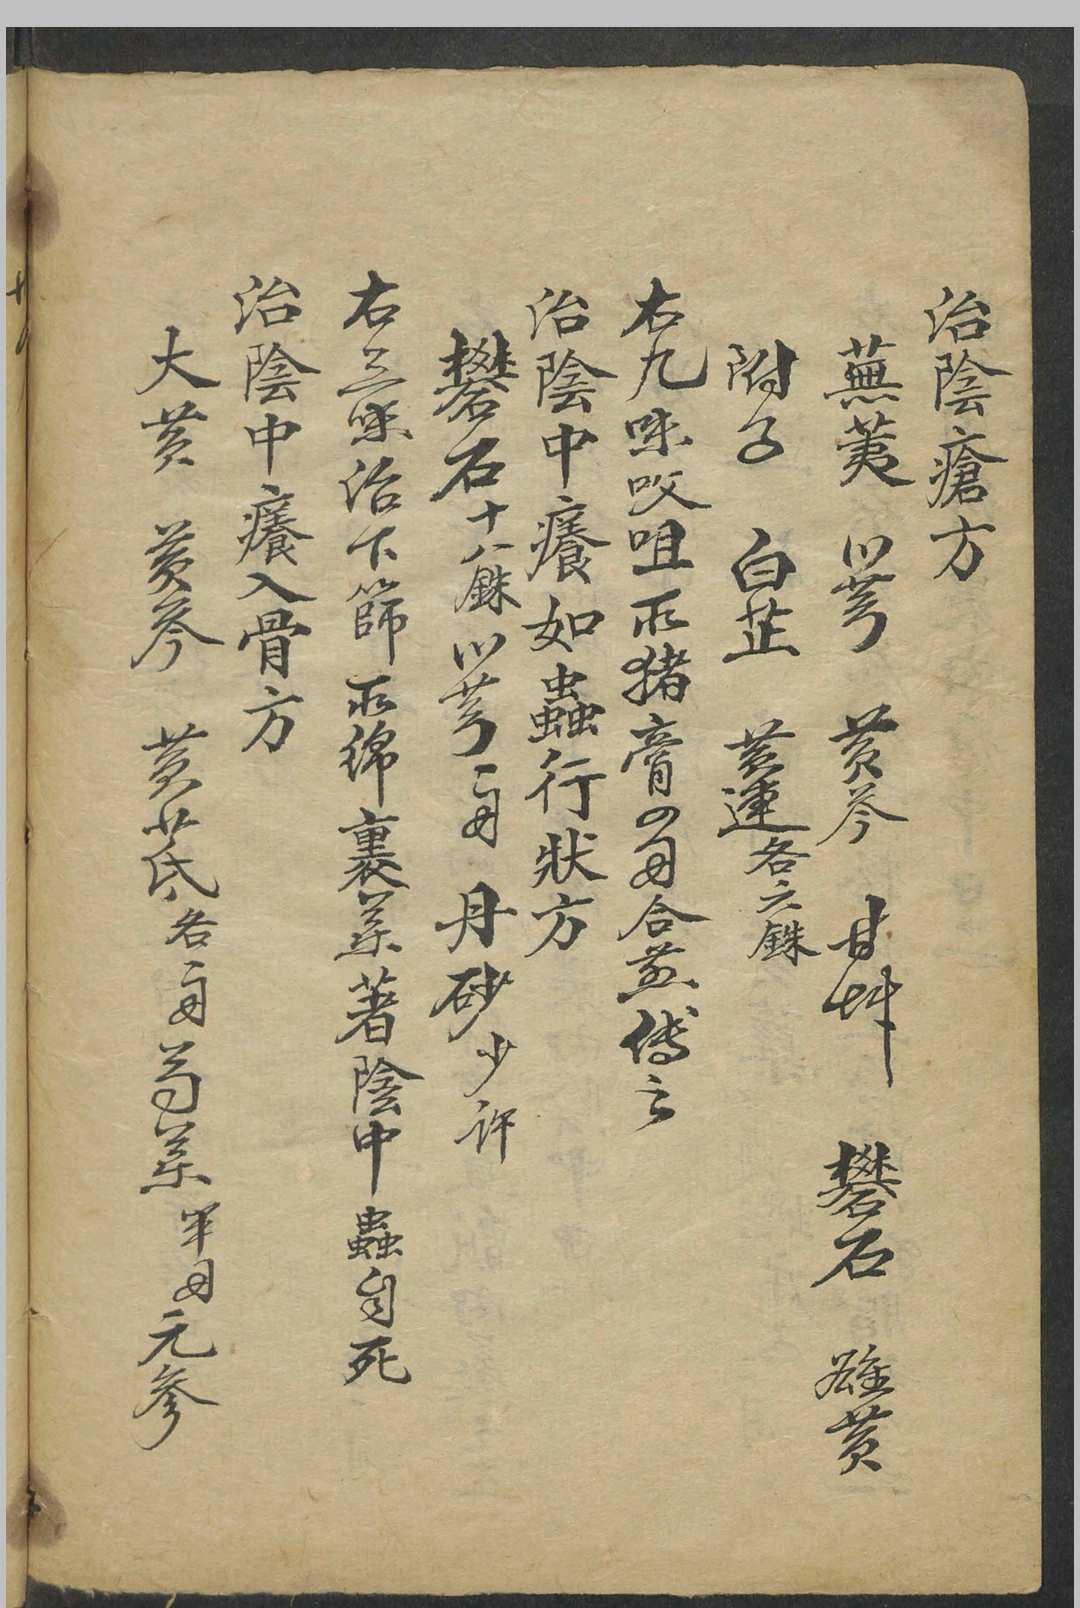 治陰瘡方
蕪荑 川芎 黄芩 甘艸 礬石 雄黄
附子 白芷 黄連各六銖
右九味㕮咀以猪膏四兩合煎傅之
治陰中癢如蟲行狀方
礬石十八銖 川芎一兩 丹砂少許
右三味治下篩以綿裹薬著陰中蟲自死
治陰中癢入骨方
大黄 黄芩 黄茋各一兩 芍薬半兩 元參